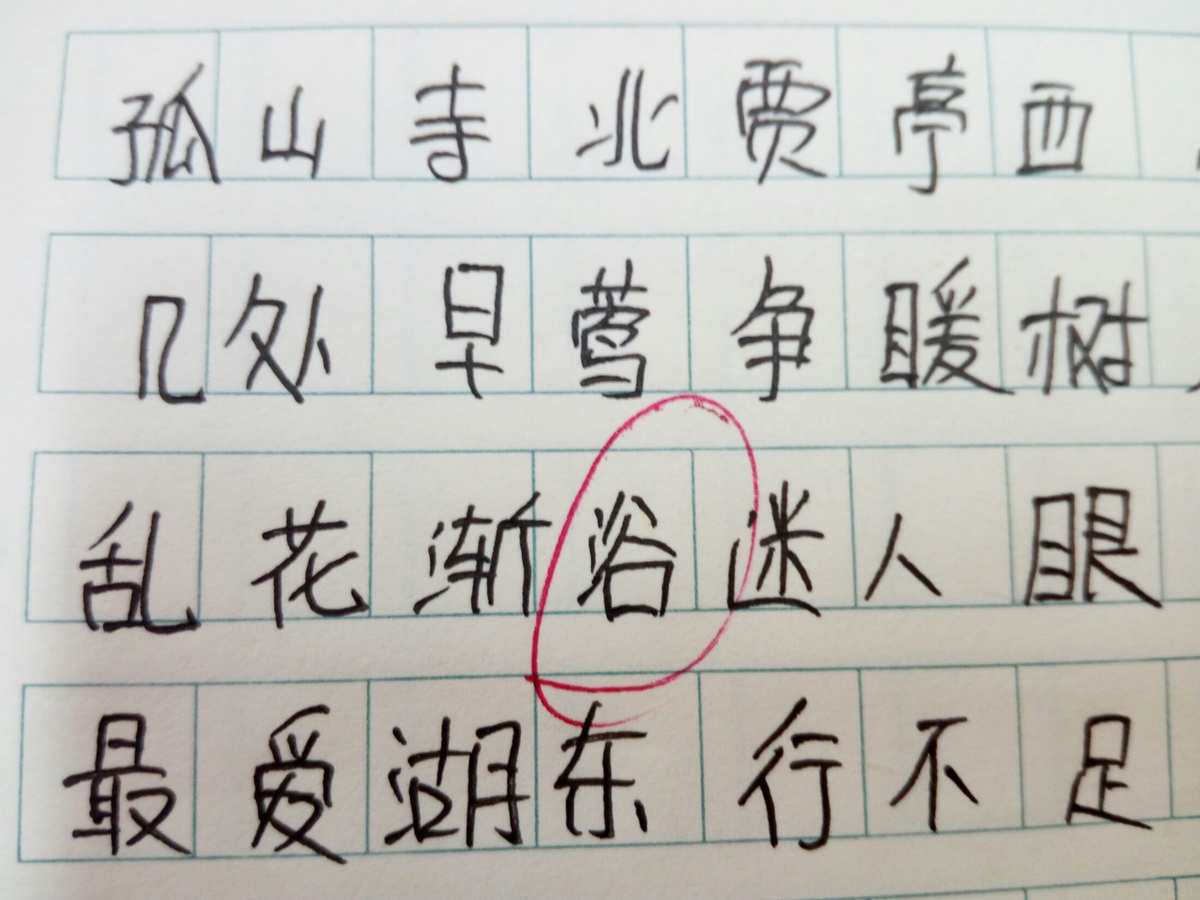 孤山寺北贾亭西
几处早莺争暖树
乱花渐浴迷人眼
最爱湖东行不足